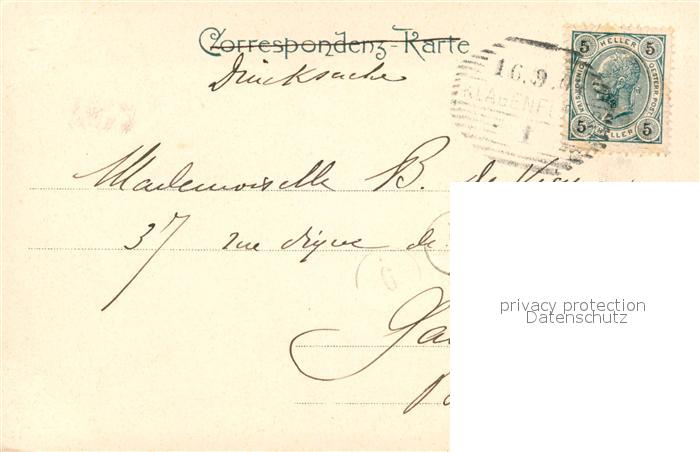 Correspondenz-Karte
Drucksache
5 HELLER 5
KAIS. KÖNIGL. OESTERR. POST.
5 HELLER 5
16.9.
KLAGENFU
1
Mademoiselle B. de
37 rue digue de
6
privacy protection
Datenschutz